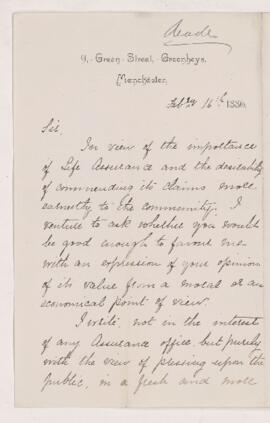 Reade
9, Green Street, Greenheys,
Manchester,
Feby 16th 1886
Sir,
In view of the importance
of Life Assurance and the desirability
of commending its claims more
earnestly to the community, I
venture to ask whether you would
be good enough to favour me
with an expression of your opinion
of its value from a moral or an
economical point of view.
I write, not in the interest
of any Assurance office, but purely
with the view of pressing upon the
public, in a fresh and more